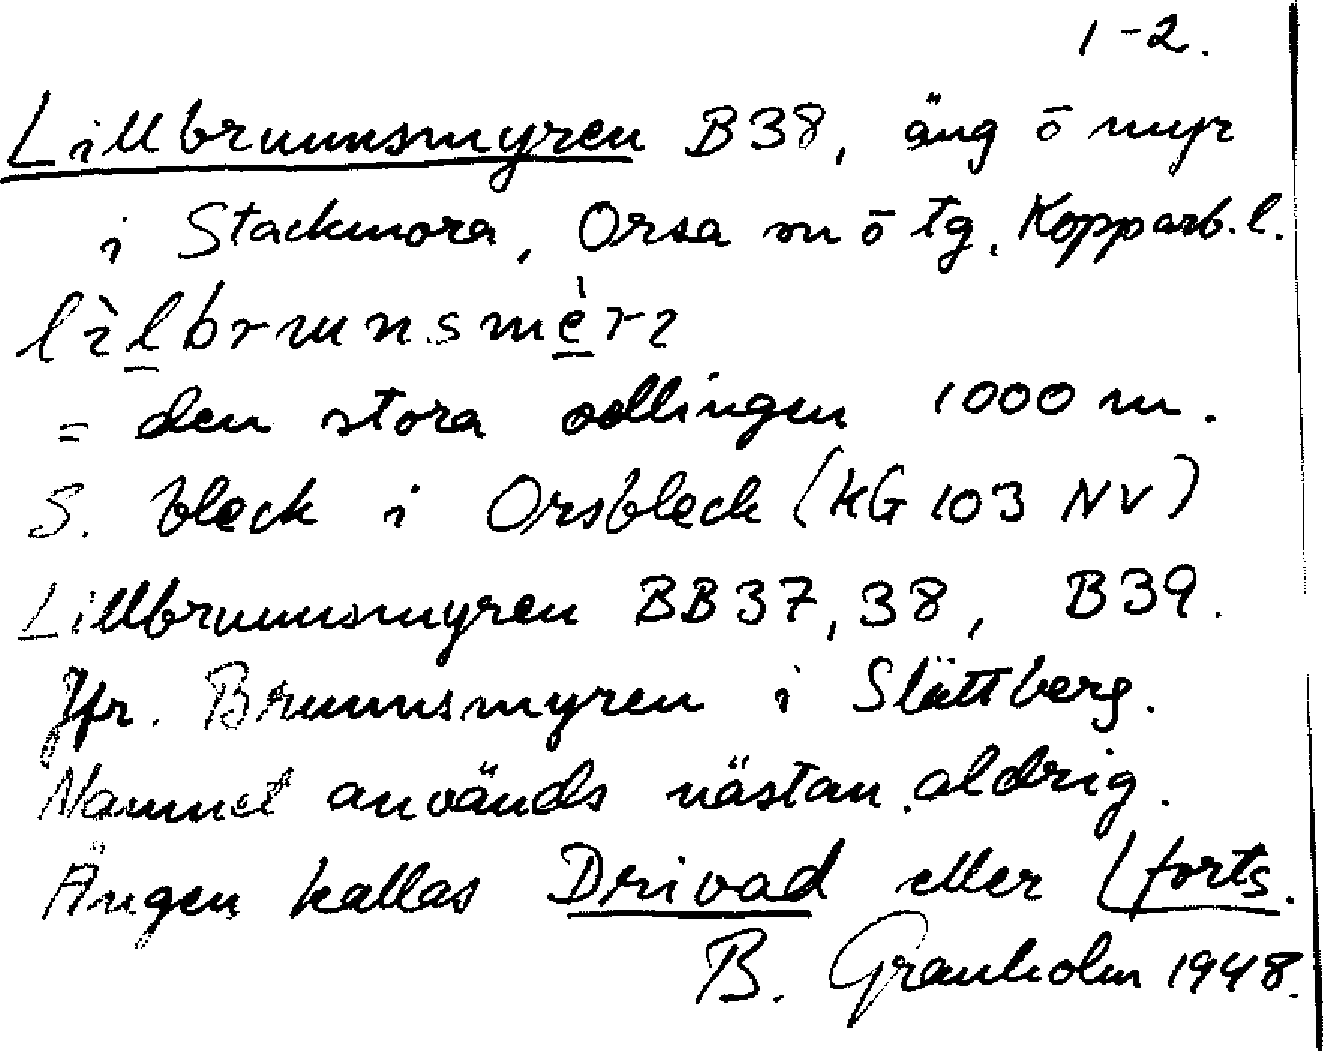 1-2.
Lillbrunnsmyren B38, äng ō myr
i Stackmora, Orsa sn ō tg. Kopparb. l.
= den stora odlingen 1000 m.
S. bleck i Orsbleck (KG 103 NV)
Lillbrunnsmyren BB37, 38, B39.
Jfr. Brunnsmyren i Slättberg.
Namnet används nästan aldrig.
Ängen kallas Drivad eller (forts.
B. Granholm 1948.